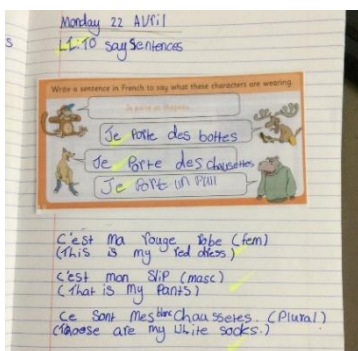 Monday 22 AVril
L.I.TO say Sentences
Write a sentence in French to say what these characters are wearing.
Je porte un chapeau.
Je Porte des bottes
Je Porte des chausettes
Je Porte un Pull
C'est ma rouge robe (fem)
(This is my red dress)
C'est mon Slip (masc)
(That is my Pants)
Ce Sont mes blanc chaussetes. (Plural)
(Those are my white socks.)